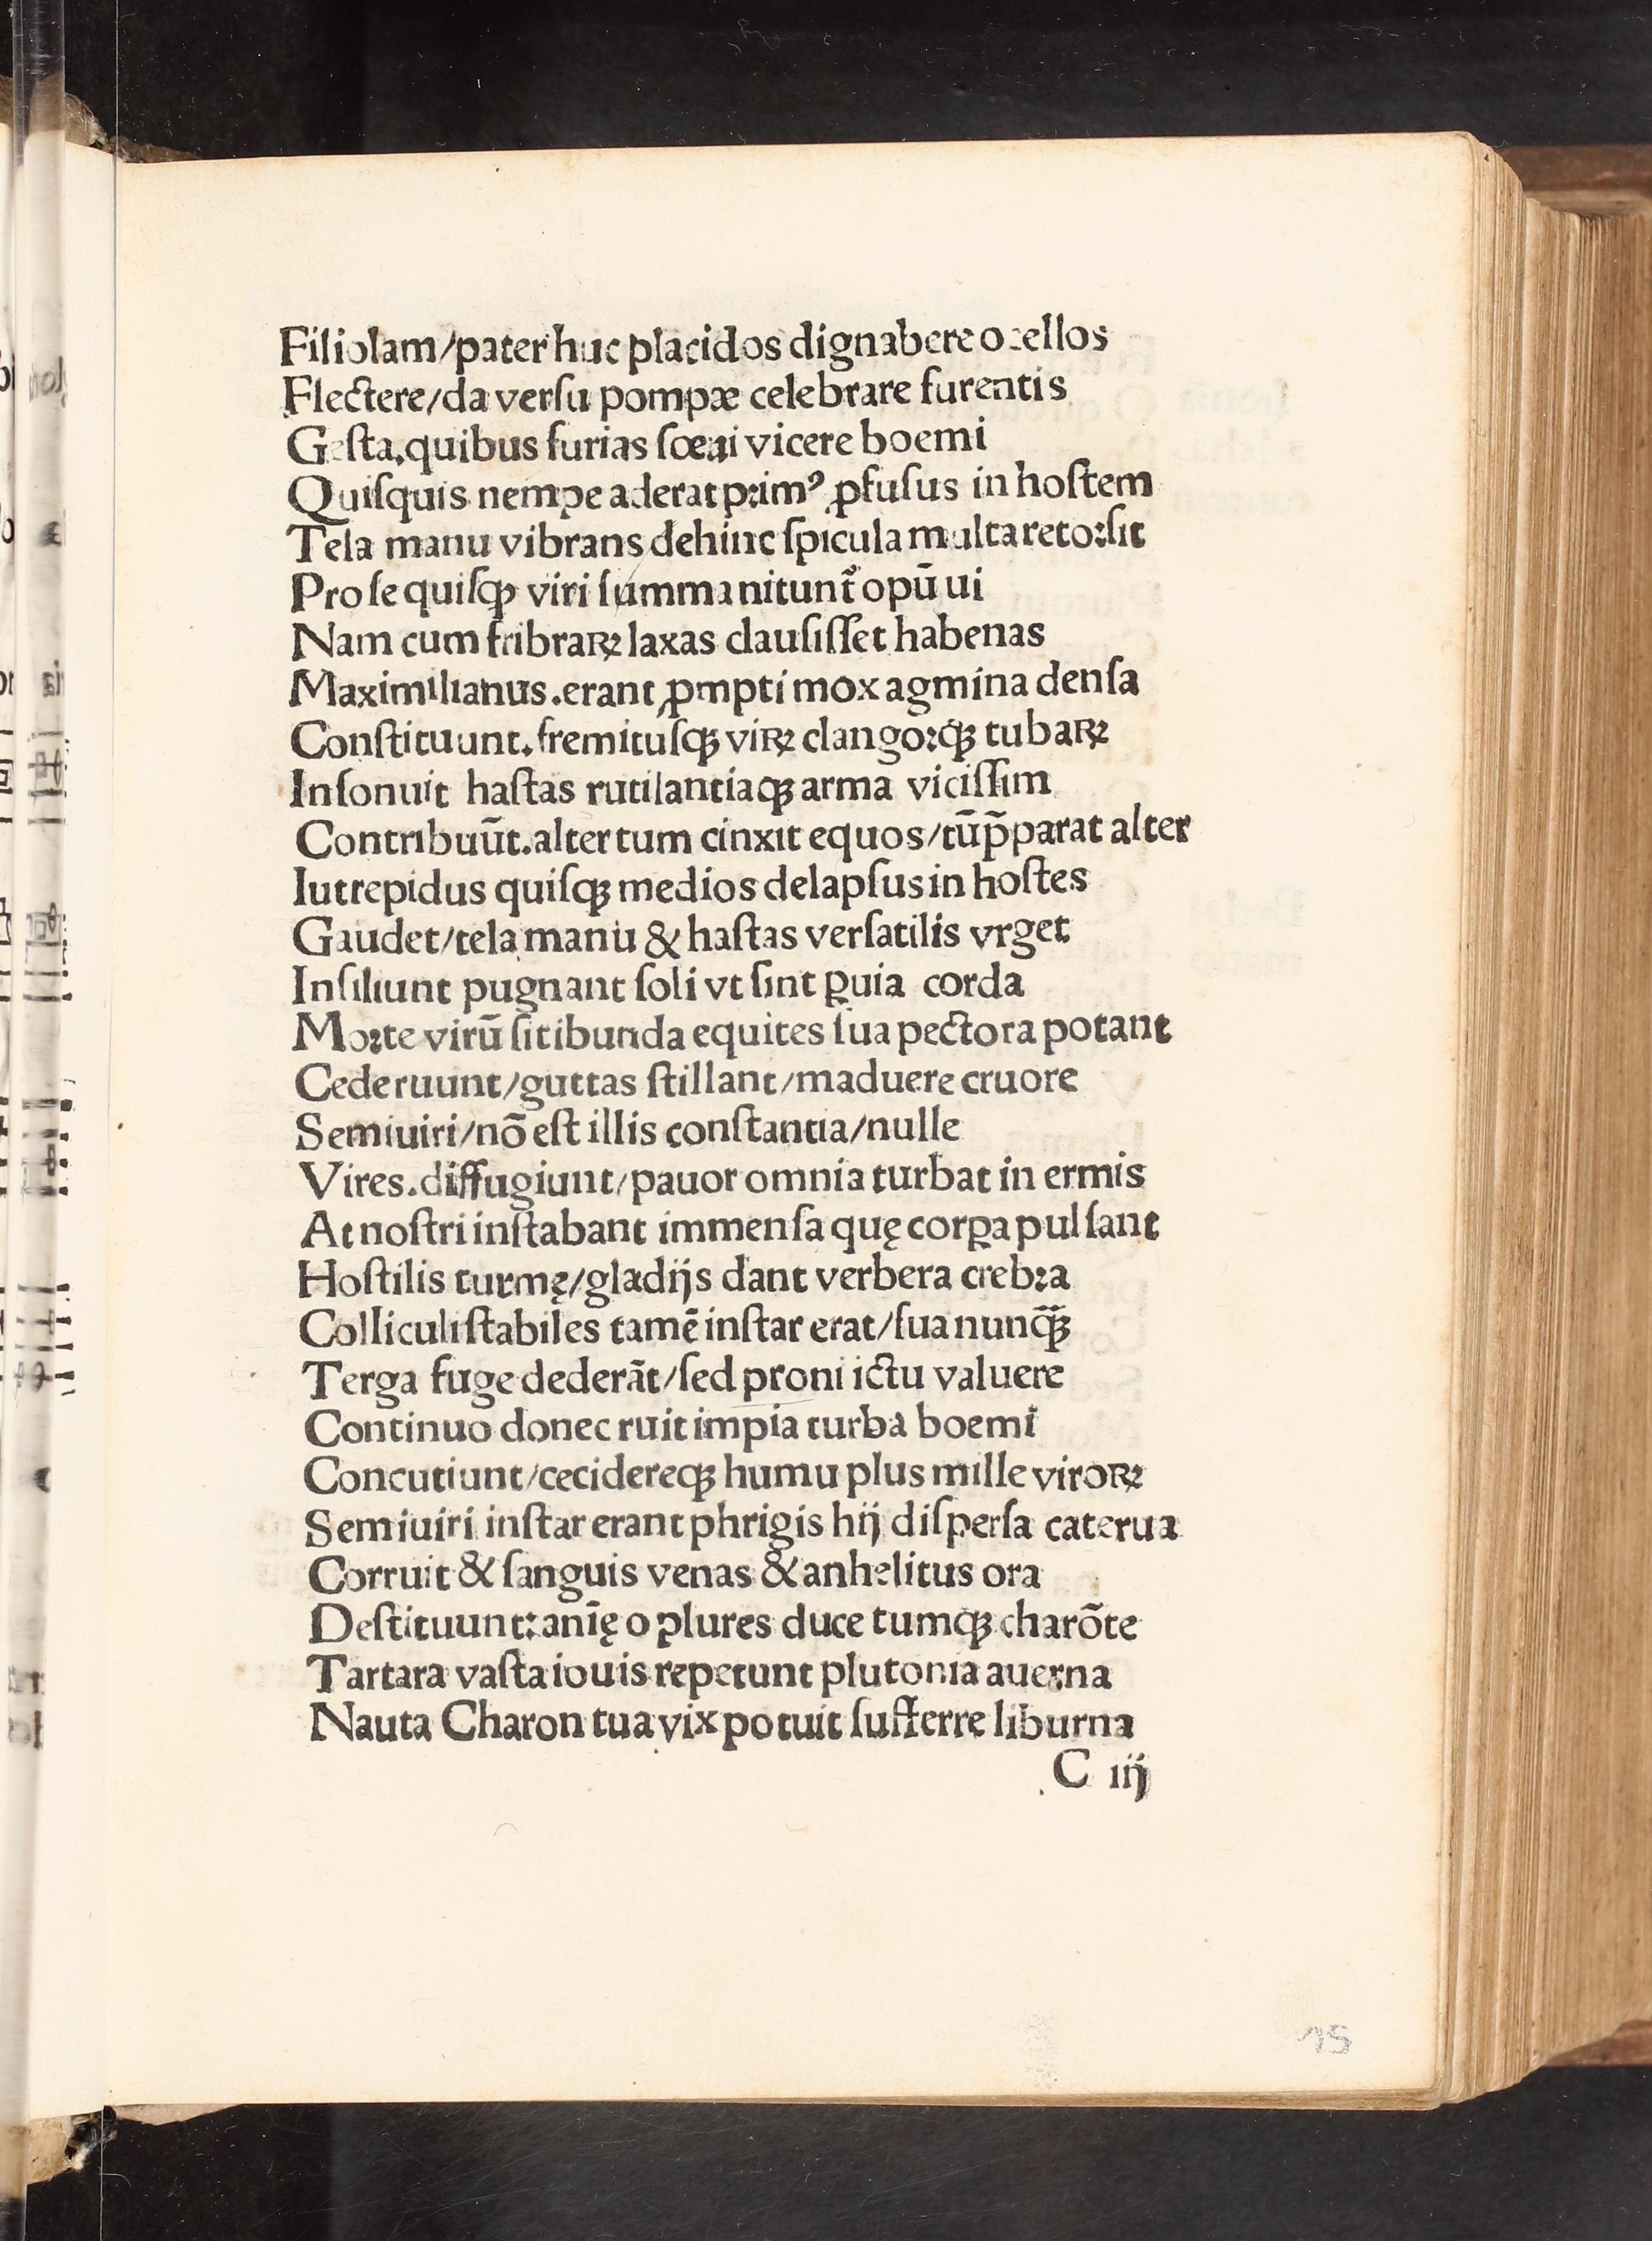 Filiolam/pater huc placidos dignabere ocellos
Flectere/da verſu pompæ celebrare furentis
Geſta.quibus furias ſœui vicere boemi
Quiſquis nempe aderat primꝰ ꝓfuſus in hoſtem
Tela manu vibrans dehinc ſpicula multa retorſit
Pro ſe quiſqꝫ viri ſumma nitunt᷑ opū ui
Nam cum fribraꝝ laxas clauſiſſet habenas
Maximilianus.erant ꝓmpti mox agmina denſa
Conſtituunt.fremituſqꝫ viꝝ clangorqꝫ tubaꝝ
Inſonuit haſtas rutilantiaqꝫ arma viciſſim
Contribuūt.alter tum cinxit equos/tūp̄parat alter
Iutrepidus quiſqꝫ medios delapſus in hoſtes
Gaudet/tela manu & haſtas verſatilis vrget
Inſiliunt pugnant ſoli vt ſint ꝑuia corda
Morte virū ſitibunda equites ſua pectora potant
Cede ruunt/guttas ſtillant/maduere cruore
Semiuiri/nō eſt illis conſtantia/nulle
Vires.diffugiunt/pauor omnia turbat in ermis
At noſtri inſtabant immenſa quę corꝑa pulſant
Hoſtilis turmę/gladijs dant verbera crebra
Colliculi ſtabiles tamē inſtar erat/ſua nunq̄ꝫ
Terga fuge dederāt/ſed proni ictu valuere
Continuo donec ruit impia turba boemi
Concutiunt/cecidereqꝫ humu plus mille viroꝝ
Semiuiri inſtar erant phrigis hij diſperſa caterua
Corruit & ſanguis venas & anhelitus ora
Deſtituunt:anīę o plures duce tumqꝫ charōte
Tartara vaſta iouis repetunt plutonia auerna
Nauta Charon tua vix potuit ſufferre liburna
C iij
15